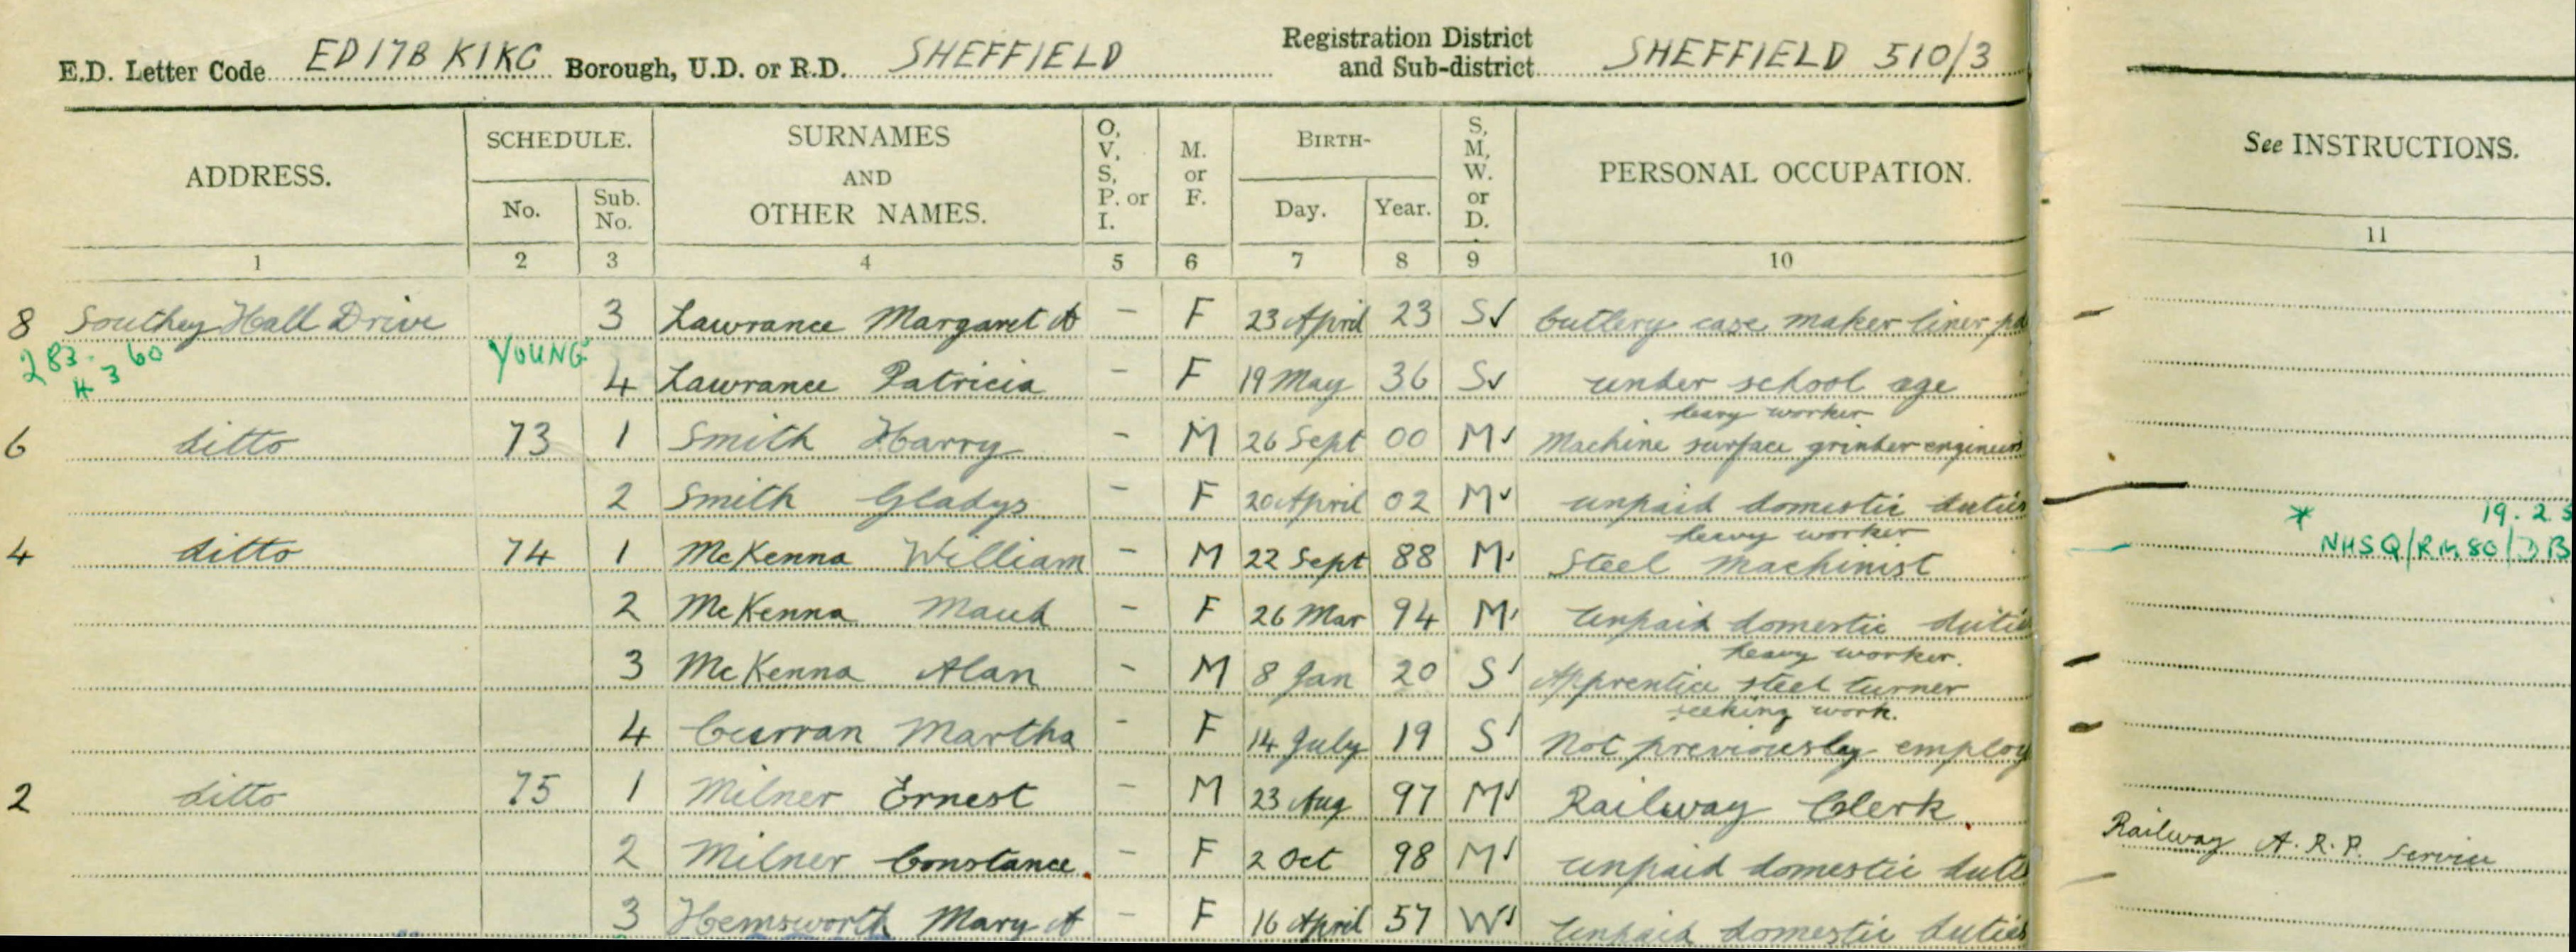 E.D. Letter Code ED17B KIKC Borough, U.D. or R.D. SHEFFIELD Registration District and Sub-district SHEFFIELD 510/3
ADDRESS. SCHEDULE. No. Sub. No. SURNAMES AND OTHER NAMES. O, V, S, P. or I. M. or F. BIRTH- Day. Year. S, M, W. or D. PERSONAL OCCUPATION. See INSTRUCTIONS.
1 2 3 4 5 6 7 8 9 10 11
8 Southey Hall Drive 3 Lawrance Margaret A - F 23 April 23 S✓ Cutlery case maker liner
283 60 YOUNG
4 3
4 Lawrance Patricia - F 19 May 36 S✓ under school age
heavy worker
6 ditto 73 1 Smith Harry - M 26 Sept 00 M✓ Machine surface grinder
2 Smith Gladys - F 20 April 02 M✓ unpaid domestic duties
* 19.2.
heavy worker
4 ditto 74 1 McKenna William - M 22 Sept 88 M✓ Steel Machinist NHSQ/RM80/DB
2 McKenna Maud - F 26 Mar 94 M✓ Unpaid domestic duties
heavy worker.
3 McKenna Alan - M 8 Jan 20 S✓ Apprentice steel turner
seeking work.
4 Curran Martha - F 14 July 19 S✓ Not previously employ
2 ditto 75 1 Milner Ernest - M 23 Aug 97 M✓ Railway Clerk. Railway A.R.P. Service
2 Milner Constance. - F 2 Oct 98 M✓ unpaid domestic
3 Hemsworth Mary A - F 16 April 57 W✓ Unpaid domestic duties